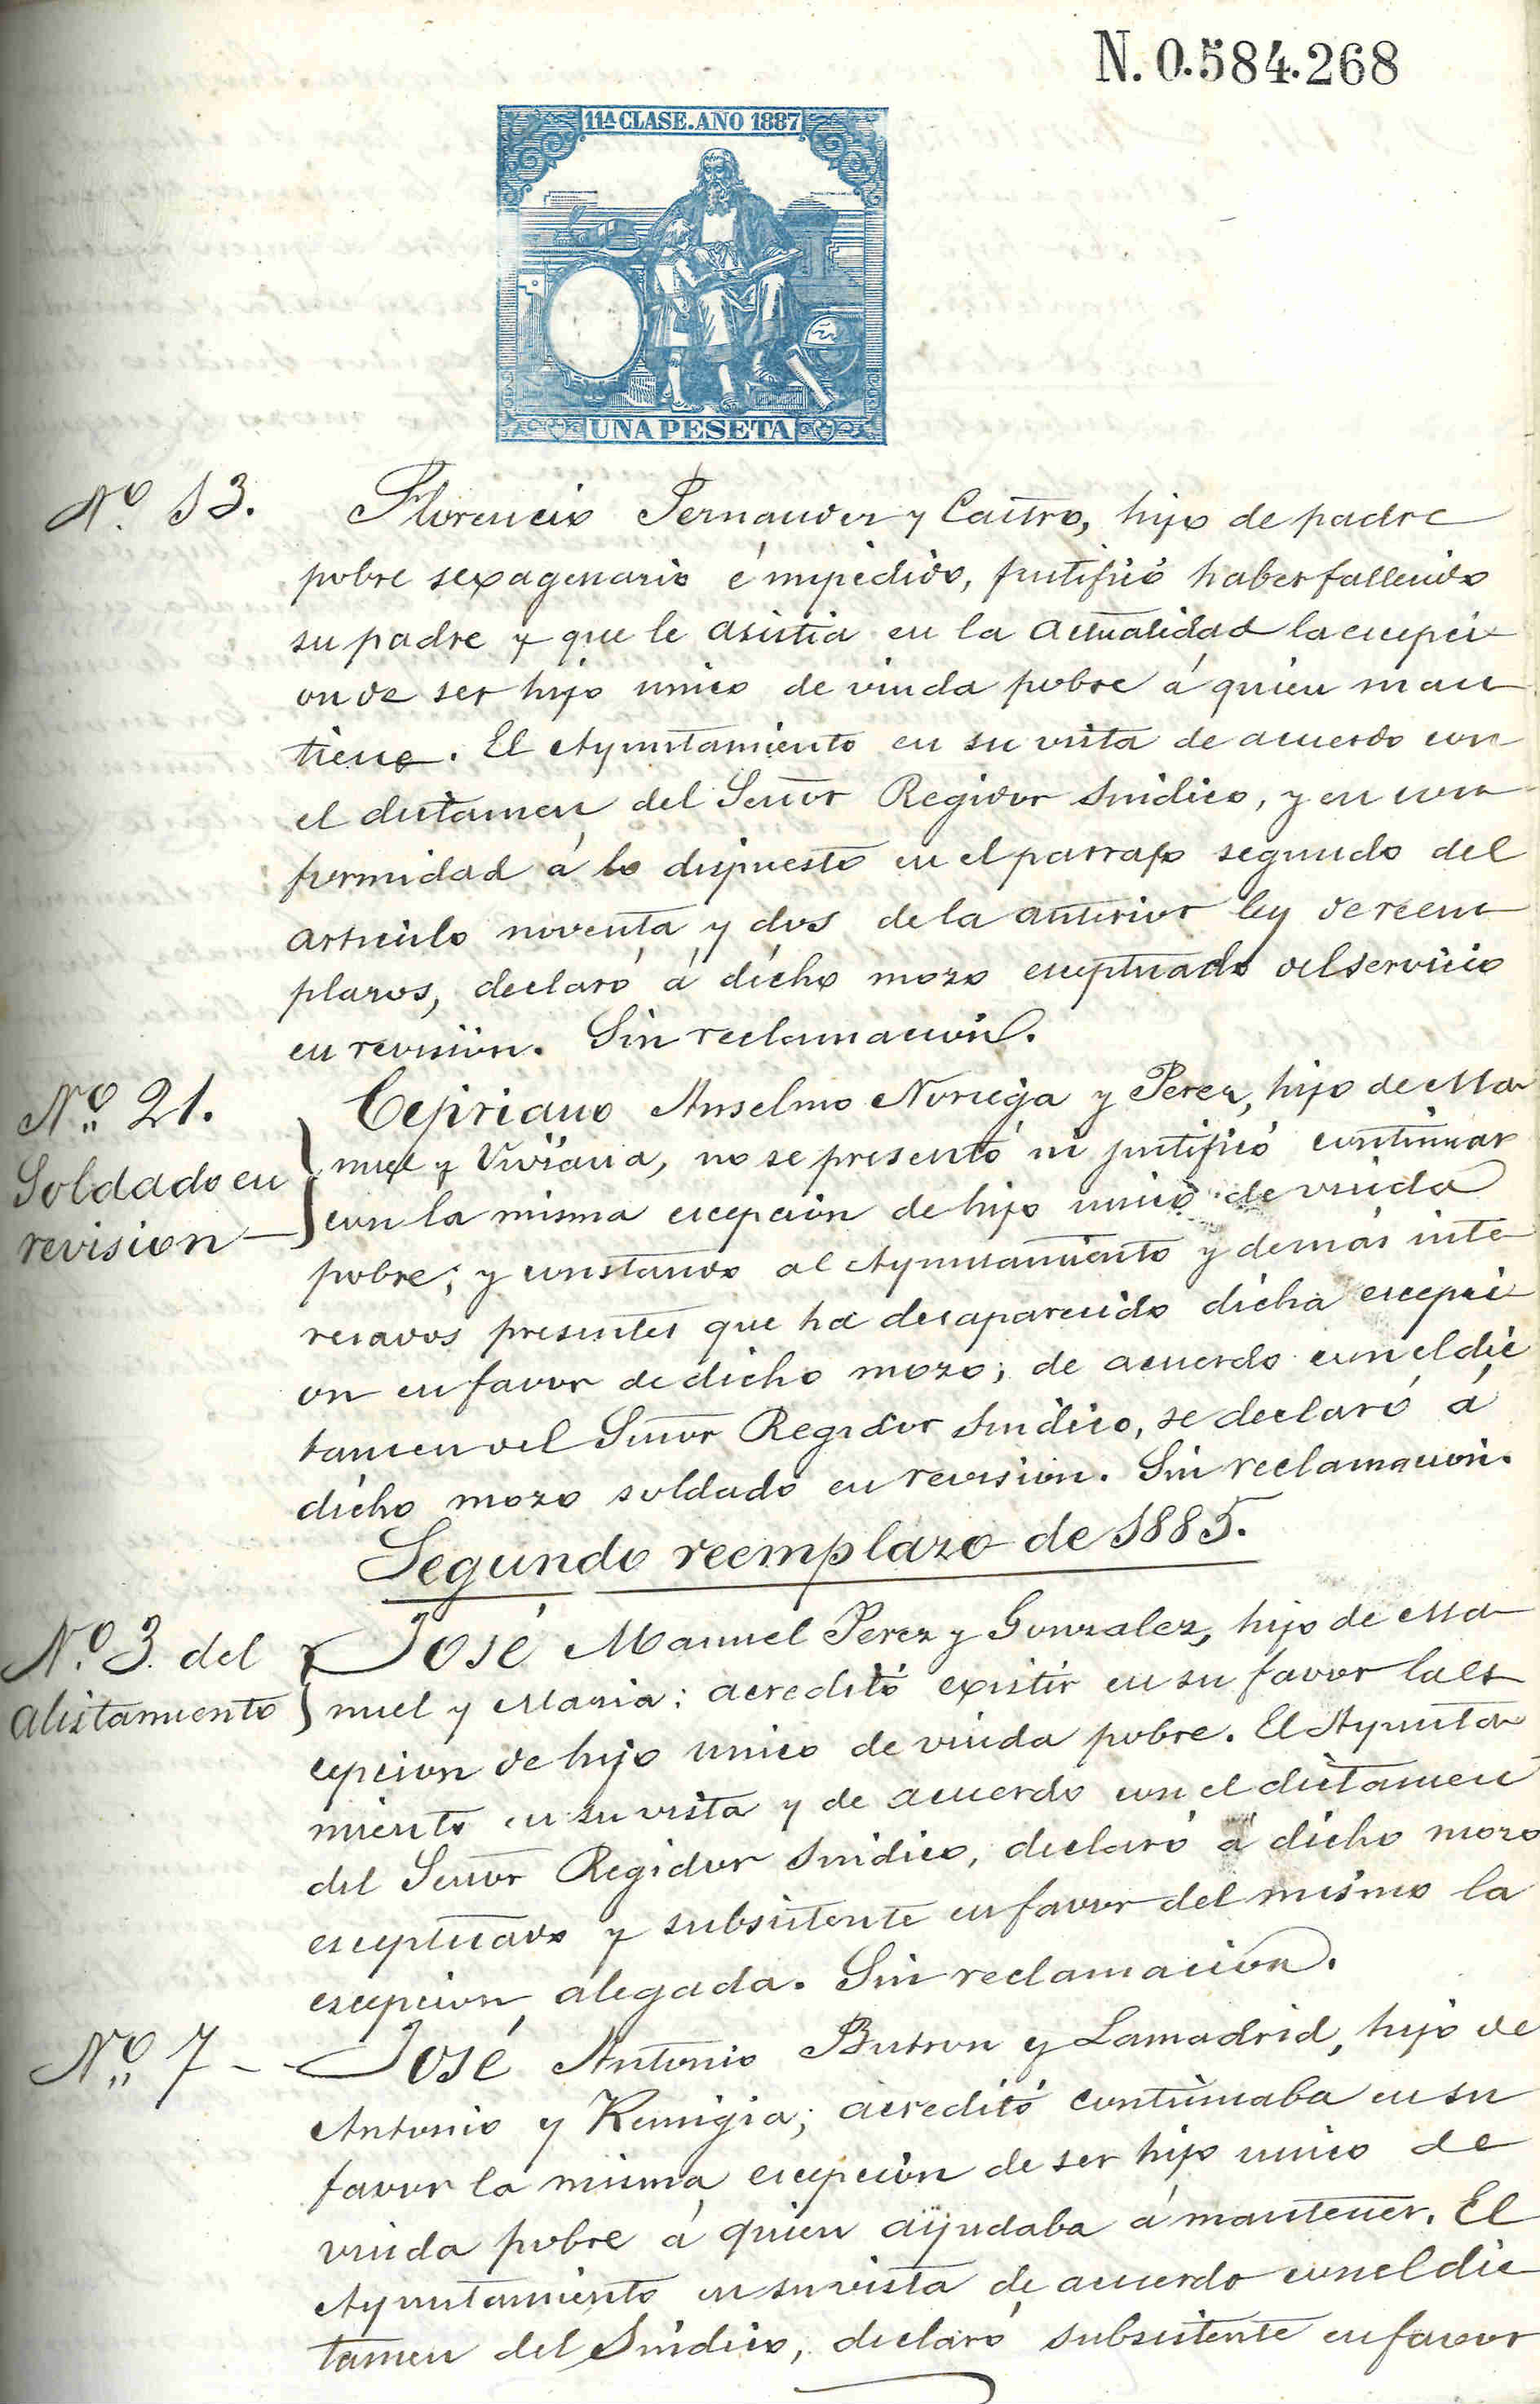 N. 0.584.268
11ª CLASE. AÑO 1887
UNA PESETA
Nº 13. Florencio Fernandez y Castro, hijo de padre
pobre sexagenario é impedido, justificó haber fallecido
su padre y que le asistia en la actualidad la escepci
on de ser hijo unico de viuda pobre á quien man
tiene. El Ayuntamiento en su vista de acuerdo con
el dictamen del Señor Regidor Sindico, y en con
formidad á lo dispuesto en el parrafo segundo del
articulo noventa y dos de la anterior ley de reem
plazos, declaró á dicho mozo esceptuado del servicio
en revision. Sin reclamacion.
Nº 21. Cipriano Anselmo Noriega y Perez, hijo de Ma
Soldado en nuel y Viviana, no se presentó ni justificó continuar
revision con la misma escepcion de hijo unico de viuda
pobre; y constando al Ayuntamiento y demás inte
resados presentes que ha desaparecido dicha escepci
on en favor de dicho mozo; de acuerdo con el dic
tamen del Señor Regidor Sindico, se declaró á
dicho mozo soldado en revision. Sin reclamacion.
Segundo reemplazo de 1885.
Nº 3 del José Manuel Perez y Gonzalez, hijo de Ma
alistamiento nuel y Maria: acreditó existir en su favor la es
cepcion de hijo unico de viuda pobre. El Ayunta
miento en su vista y de acuerdo con el dictamen
del Señor Regidor Sindico, declaró á dicho mozo
esceptuado y subsistente en favor del mismo la
escepcion alegada. Sin reclamacion.
Nº 7 - José Antonio Butron y Lamadrid, hijo de
Antonio y Remigia; acreditó continuaba en su
favor la misma escepcion de ser hijo unico de
viuda pobre á quien ayudaba á mantener. El
Ayuntamiento en su vista de acuerdo con el dic
tamen del Sindico, declaró subsistente en favor